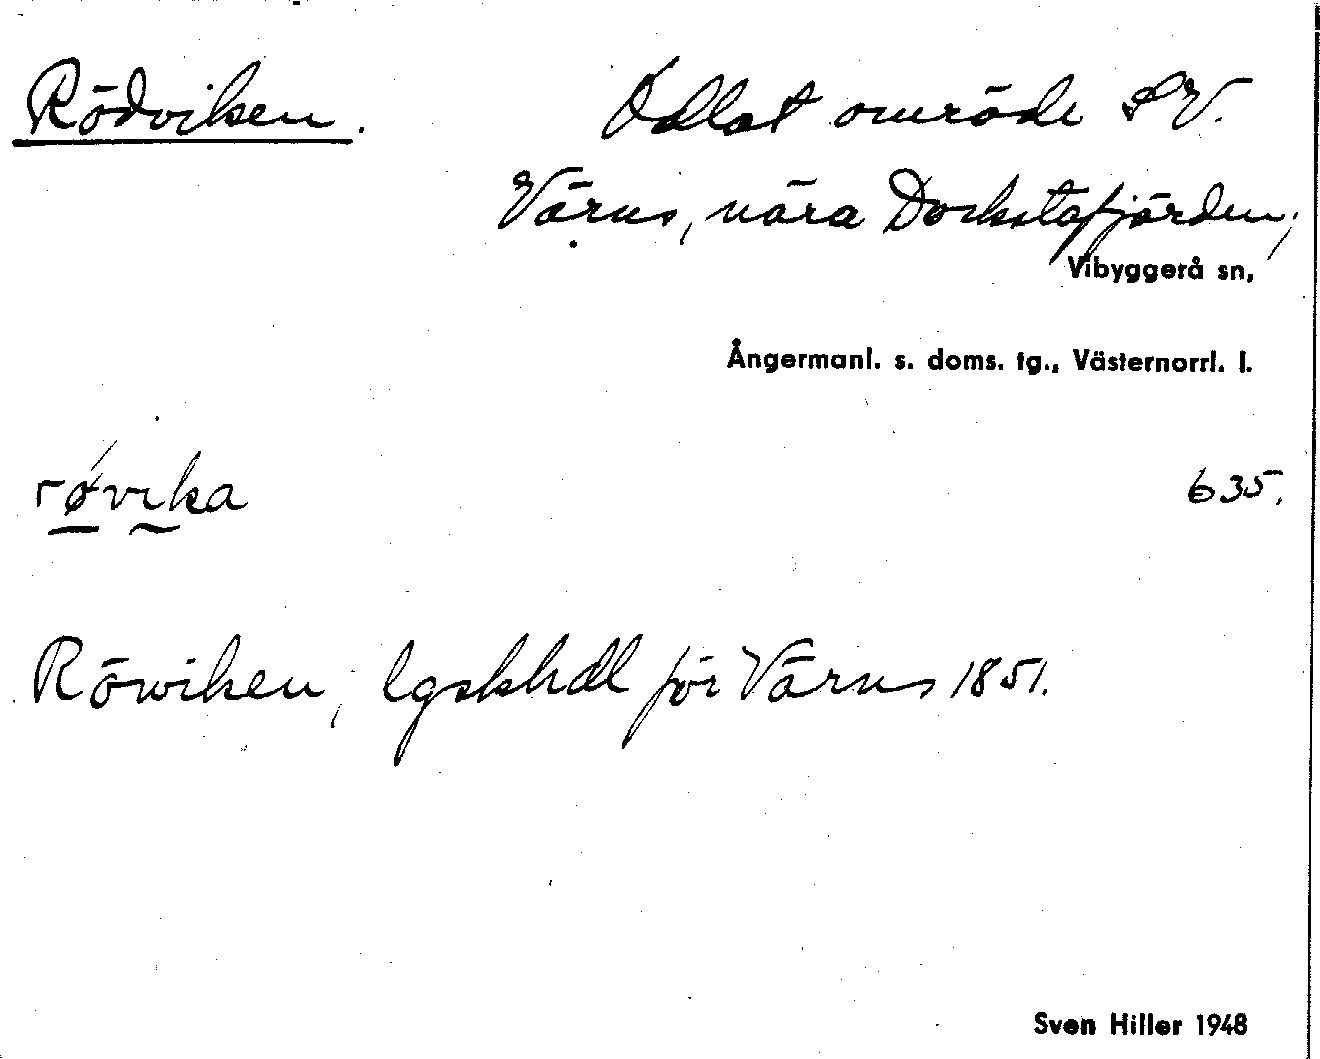 Rödviken. Odlat område S V.
Värns, nära Dockstafjärden,
Vibyggerå sn,
Ångermanl. s. doms. tg., Västernorrl. l.
røvika 635.
Röwiken, lgskhdl för Värns 1851.
Sven Hiller 1948